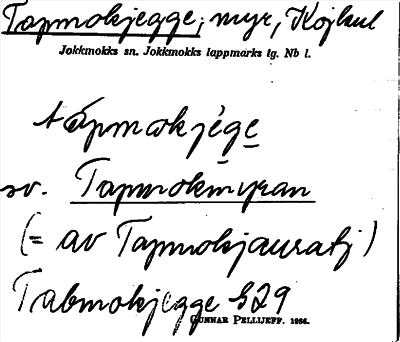 Tapmokjegge, myr, Kojkul
Jokkmokks sn. Jokkmokks lappmarks tg. Nb l.
tápmåkjége
sv. Tapmokmyran
(= av Tapmokjauratj)
Tabmokjegge B29
GUNNAR PELLIJEFF. 1966.